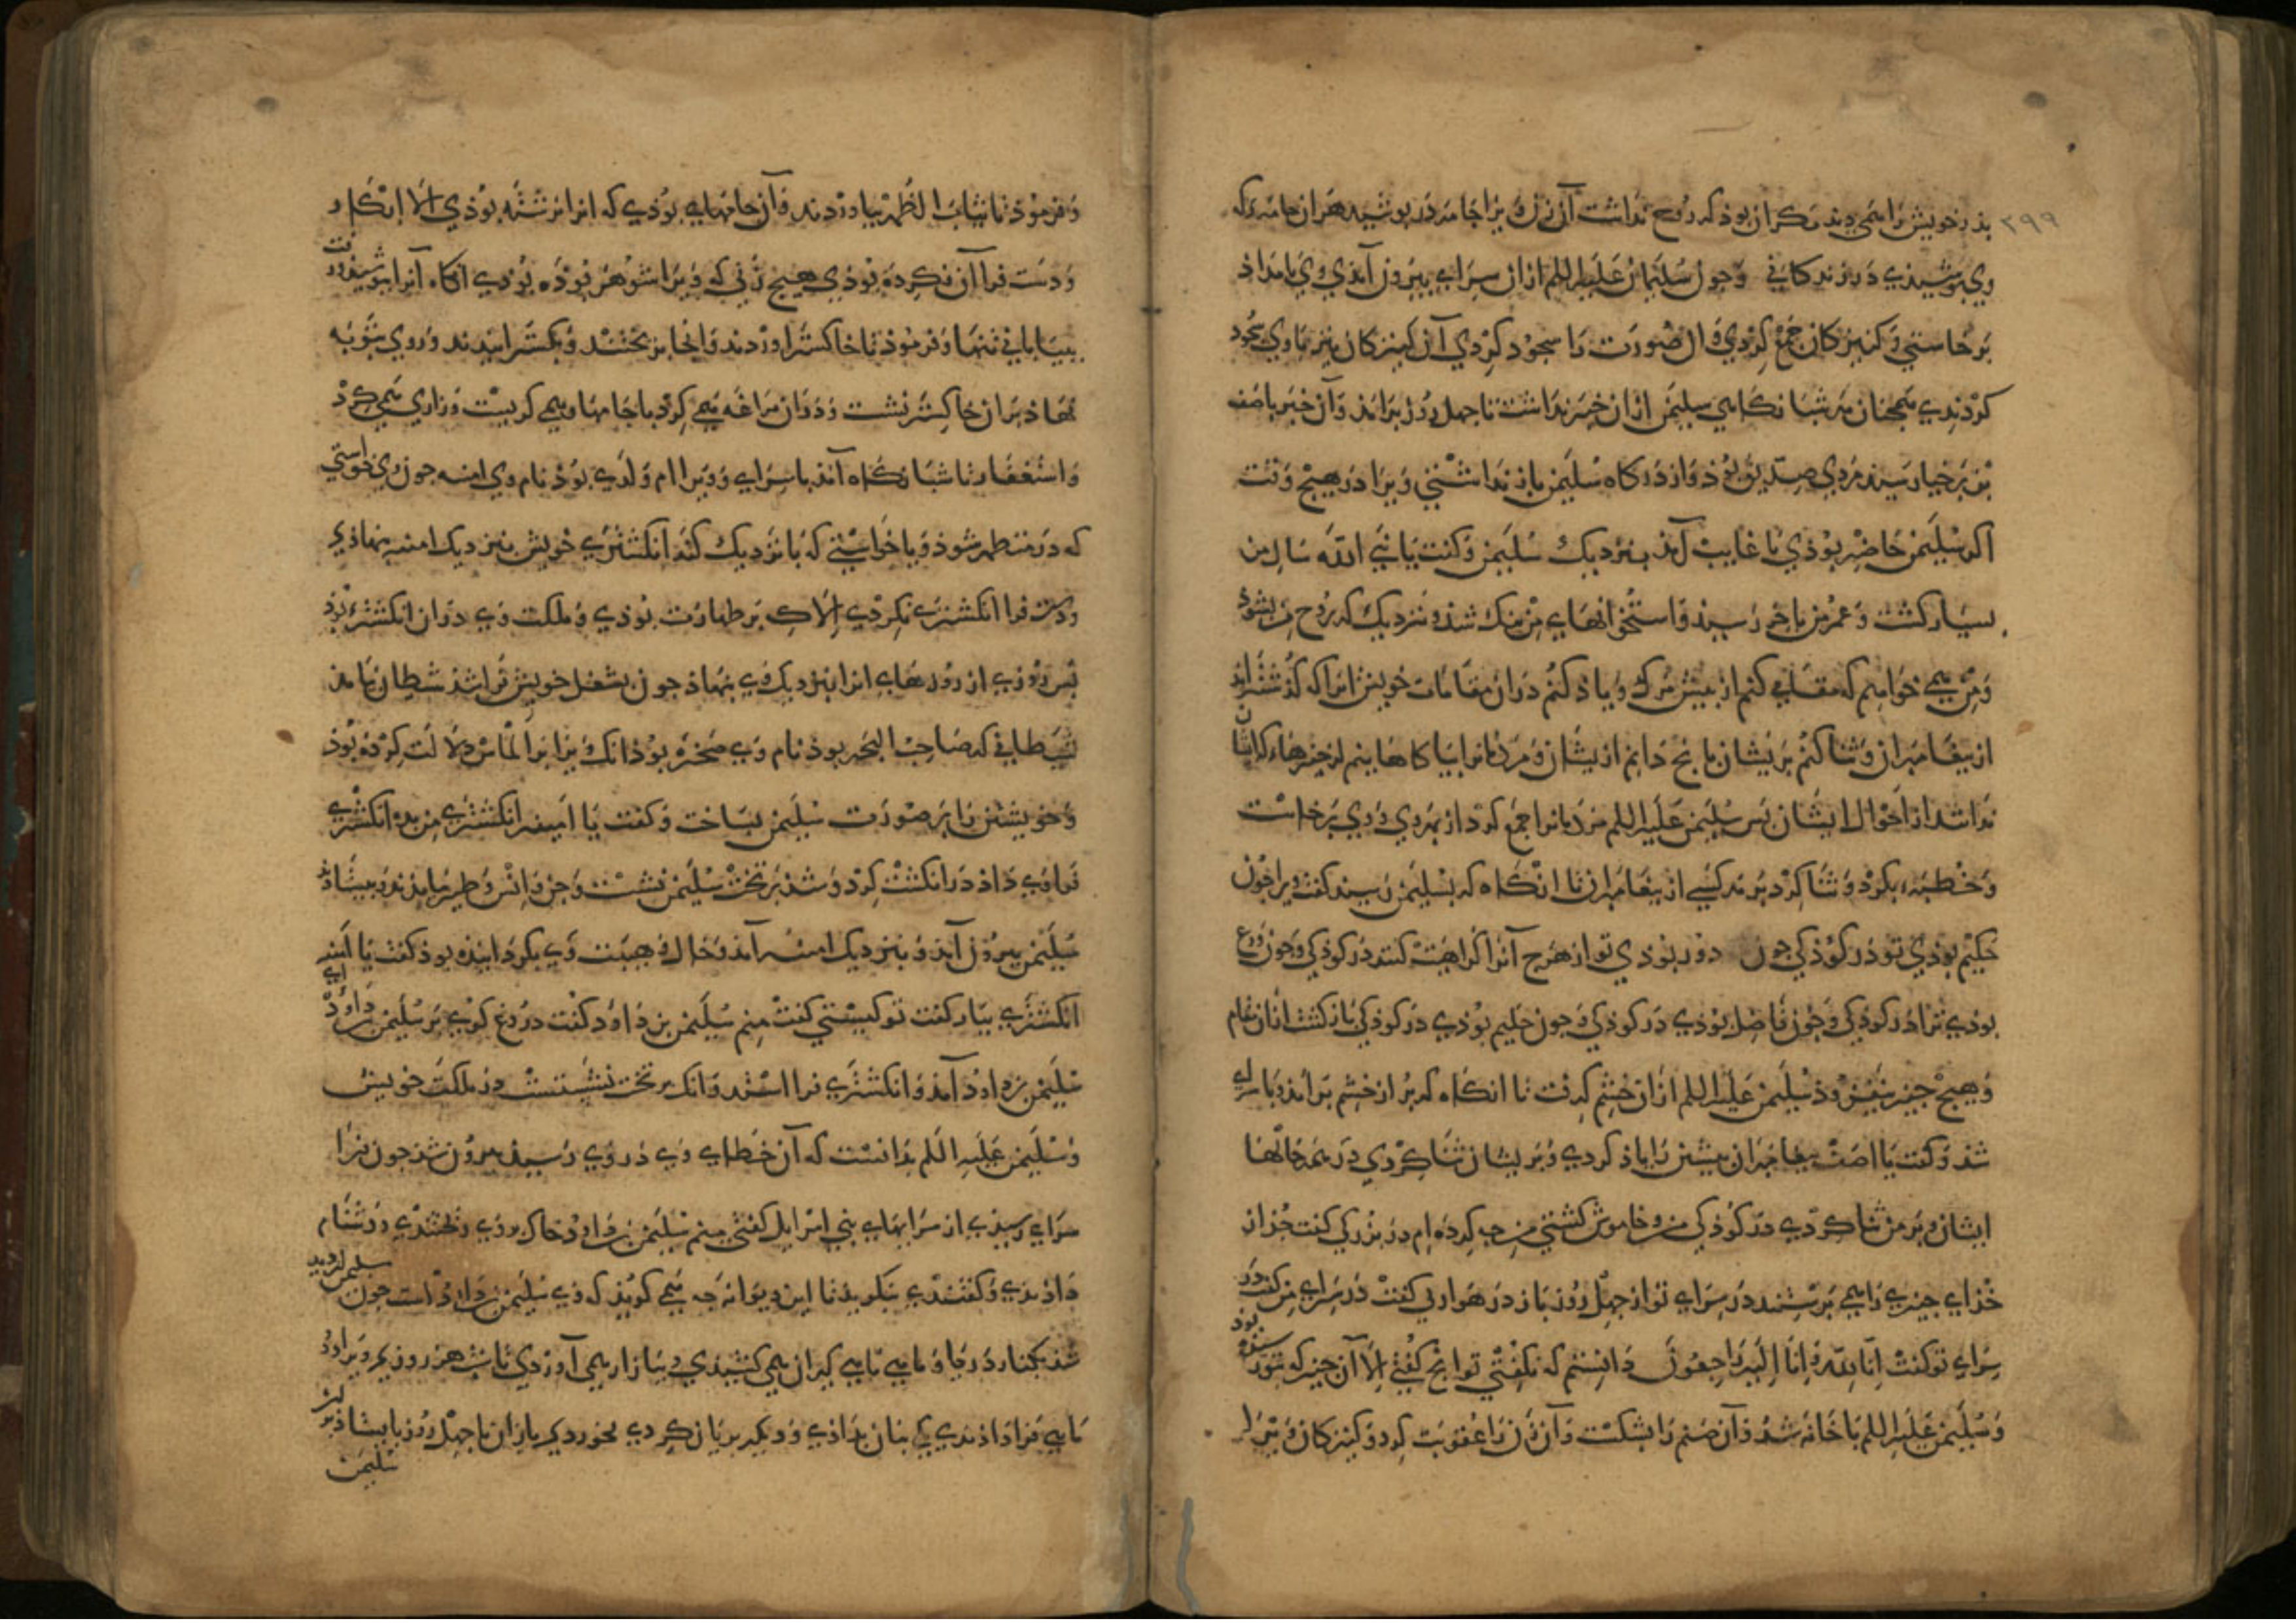 ٣٩٩
بذر خویش را همی دید مکر آن بوذ که روح نداشت آن زن ویرا جامه در بوشید هم از آن جامه که
وی بوشیذی در زندکانی وجون سلیمان علیه السلم از آن سرای بیرون آمذی وی بامداد
برخاستی و کنیزکان جمع کردی و آن صورت را سجود کردی آن کنیزکان نیز با وی سجود
کردندی همجنان شبانکاهی سلیمن از آن خبر نداشت تا جهل روز برآمذ و آن خبر باصف
بن برخیا رسیذ مردی صدیق بوذ و از درکاه سلیمن باز نداشتنی ویرا در هیج وقت
اکر سلیمن حاضر بوذی یا غایب آمذ بنزدیک سلیمن و کفت یا نبی الله سال من
بسیار کشت و عمر من باخر رسید و استخوانهای من تنک شد و نزدیک که روح من بشود
و من همی خواهم که مقامی کنم از بیش مرک و یاذ کنم در آن مقامات خویش انرا که کذشته اند
از بیغامبران و ثنا کنم بر یشان بانج دانم از یشان و مردمانرا بیاکاهانم از جیزهاء که ایشان
ندانند از احوال ایشان بس سلیمن علیه السلم مردمانرا جمع کرد از بهر وی و وی برخاست
و خطبه بکرد و ثنا کرد بر هر کسی از بیغامبران تا انکاه که بسلیمن رسید کفت ویرا جون
حکیم بوذی تو در کوذکی جون دور بوذی تو از هرج آنرا کراهیت کنند در کوذکی و جون ورع
بوذی ترا در کوذکی و جون فاضل بوذی در کوذکی و جون حلیم بوذی در کوذکی باز کشت از آن مقام
و هیج جیز نیفزوذ سلیمن علیه السلم از آن خشم کرفت تا انکاه که بر از خشم برآمد و با سرای
شد و کفت یا اصف بیغامبران بیشین را یاذ کردی و بر یشان ثنا کردی در همه حالها
ایشان و بر من ثنا کردی در کوذکی من و خاموش کشتی من جه کرده ام در بزرکی کفت جز از
خذای جیزی را همی برستند در سرای تو از جهل روز باز در هوا زنی کفت در سرای من کفت در
سرای تو کفت انا لله و انا الیه راجعون دانستم که نکفتی تو انج کفتی الا آن جیز که بتو رسیده بوذ
و سلیمن علیه السلم با خانه شد و آن صنم را بشکست و آن زن را عقوبت کرد و کنیزکان ویرا
و فرموذ تا ثیاب الطهر بیاوردند و آن جامهایی بوذی که انرا نرشته بوذی الا ابکار
و دست فرا آن نکرده بوذی هیج زنی که ویرا شوهر بوذه بوذی انکاه آنرا ببوشید و رفت
ببیابانی تنها و فرموذ تا خاکستر اوردند و انجا بریختند و بکسترانیدند و روی بتوبه
نهاذ بر آن خاکستر نشست و در آن مراغه همی کرد با جامها و همی کریست و زاری همی کرد
و استغفار تا شبانکاه آمذ با سرای و ویرا ام ولدی بوذ نام وی امنه جون وی خواستی
که در متطهر شوذ و یا خواستی که با نزدیک کند انکشتری خویش بنزدیک امنه بنهاذی
و دست فرا انکشتری نکردی الا کی بر طهارت بوذی و ملکت وی در آن انکشتری بوذ
بس روزی از روزهای انرا بنزدیک وی بنهاذ جون بشغل خویش فرا شذ شیطان بیامذ
شیطانی که صاحب البحر بوذ نام وی صخره بوذ انک ویرا بر الماس دلالت کرده بوذ
و خویشتن را بر صورت سلیمن بساخت و کفت یا امینه انکشتری من بده انکشتری
فراوی داذ در انکشت کرد و شذ بر تخت سلیمن نشست و جن و انس و طیر بیامدند و بیستادند
سلیمن بیرون آمذ و بنزدیک امنه آمذ و حال و هیبت وی بکردانیده بوذ کفت یا امینه
انکشتری بیار کفت تو کیستی کفت منم سلیمن بن داود کفت دروغ کویی بر سلیمن بن داود
سلیمن بن داود آمذ و انکشتری فرا استد و انک بر تخت نشستست در ملکت خویش
و سلیمن علیه السلم بدانست که آن خطای وی در وی رسید بیرون شذ جون فرا
سرای رسیذی از سرایهای بنی اسرایل کفتی منم سلیمن بن داود خاک بروی ریختندی و دشنام
داذندی و کفتندی بنکریذ تا این دیوانه جه همی کویذ که وی سلیمن بن داود است جون سلیمن ان دید
شذ بکنار دریا و ماهی ماهی کیران همی کشیدی و ببازار همی آوردی تا شب هر روز یکی ویرا دو
ماهی فرا داذندی یکی بنان بداذی و دیکر بریان کردی بخوردی بر آن تا جهل روز بایستاذ بس
سلیمن